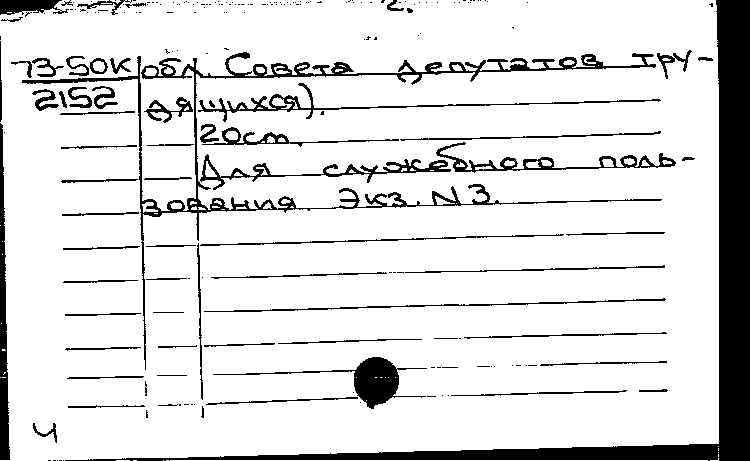 2.
73-50К обл. Совета депутатов тру-
2152 дящихся).
20ст.
Для служебного поль-
зования. Экз. N 3.
Ч